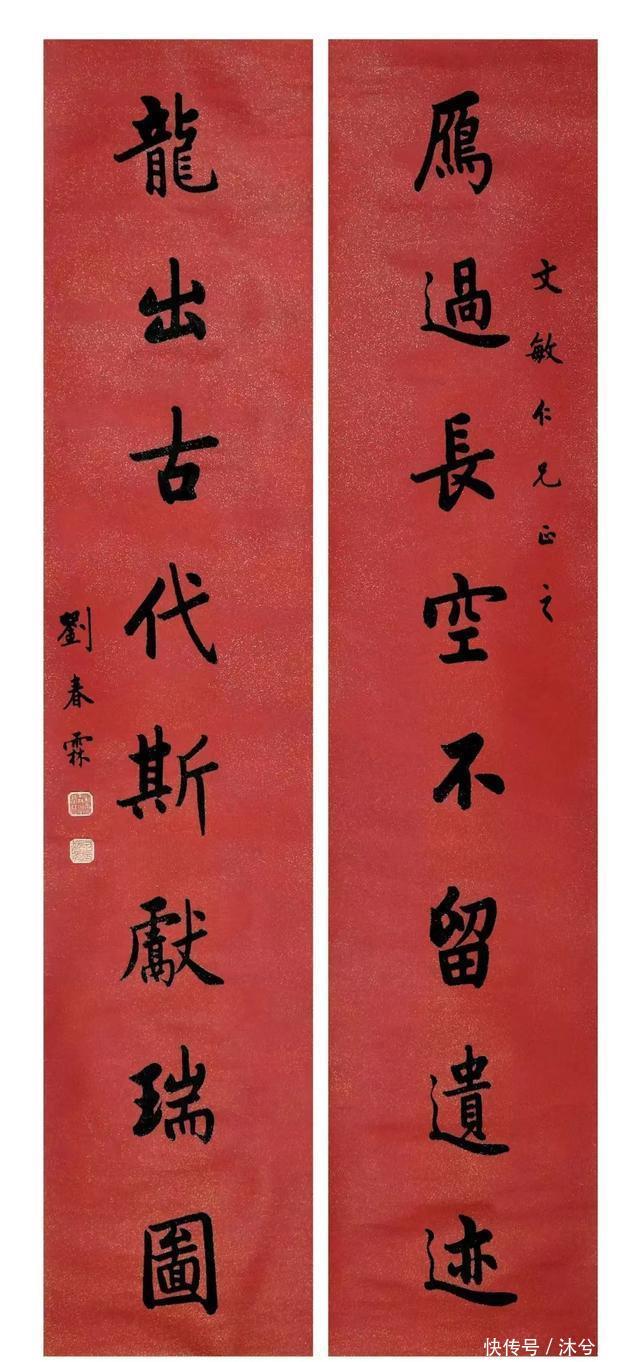 鴈過長空不留遺迹
文敏仁兄正之
龍出古代斯獻瑞圖
劉春霖
快传号/沐兮